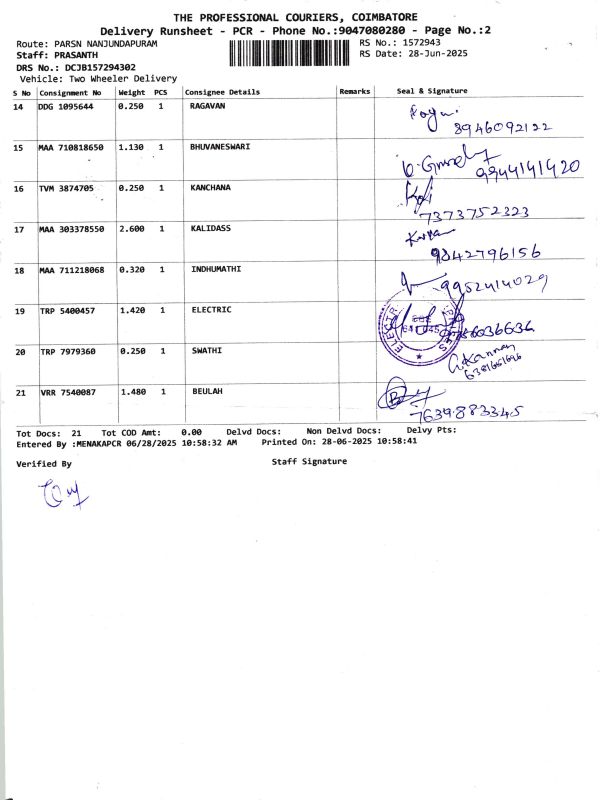 THE PROFESSIONAL COURIERS, COIMBATORE
Delivery Runsheet - PCR - Phone No.:9047080280 - Page No.:2
Route: PARSN NANJUNDAPURAM RS No.: 1572943
Staff: PRASANTH RS Date: 28-Jun-2025
DRS No.: DCJB157294302
Vehicle: Two Wheeler Delivery
S No Consignment No Weight PCS Consignee Details Remarks Seal & Signature
14 DDG 1095644 0.250 1 RAGAVAN
8946092122
15 MAA 710818650 1.130 1 BHUVANESWARI
9944141420
16 TVM 3874705 0.250 1 KANCHANA
7373752323
17 MAA 303378550 2.600 1 KALIDASS
9842796156
18 MAA 711218068 0.320 1 INDHUMATHI
9952414029
19 TRP 5400457 1.420 1 ELECTRIC
20 TRP 7979360 0.250 1 SWATHI
21 VRR 7540087 1.480 1 BEULAH
7639883345
Tot Docs: 21 Tot COD Amt: 0.00 Delvd Docs: Non Delvd Docs: Delvy Pts:
Entered By :MENAKAPCR 06/28/2025 10:58:32 AM Printed On: 28-06-2025 10:58:41
Verified By Staff Signature